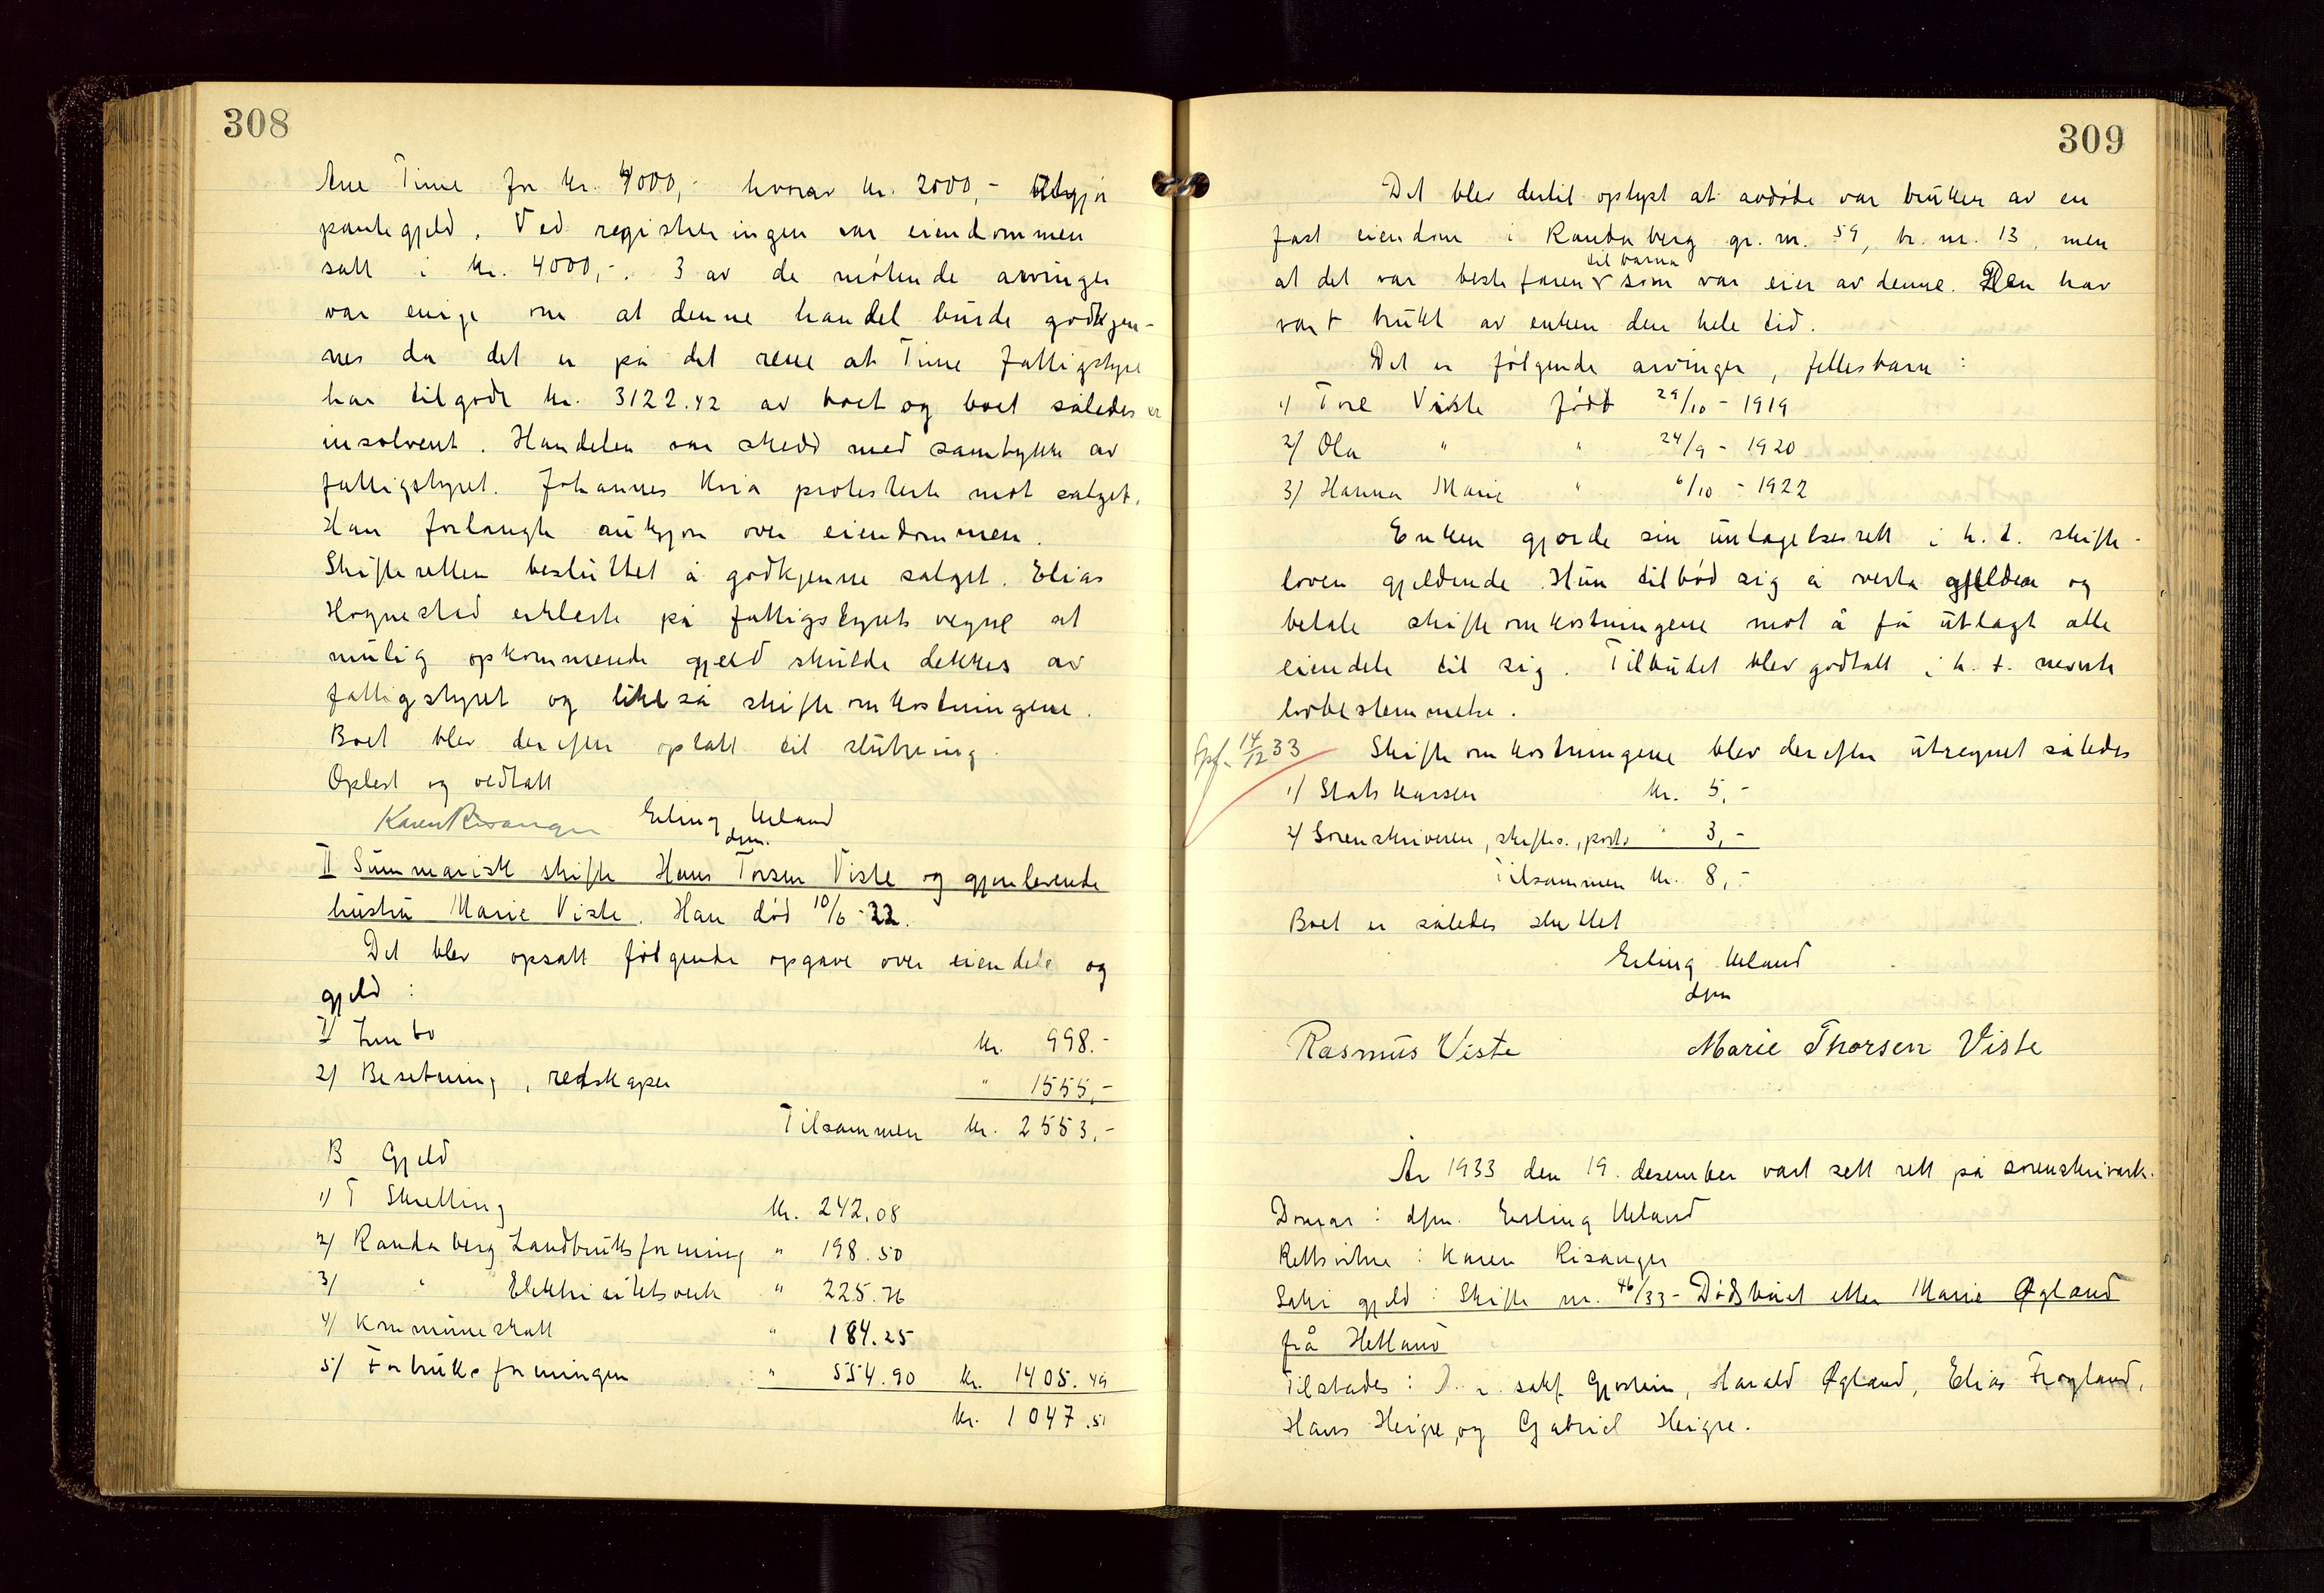 308
Ane Time for kr. 4000,- hvorav kr. 2000,- utgjør
pantegjeld. Ved registreringen var eiendommen
satt i kr. 4000,-. 3 av de møtende arvinger
var enige om at denne handel burde godkjen-
nes da det er på det rene at Time fattigstyre
har tilgode kr. 3122.42 av boet og boet således er
insolvent. Handelen var skedd med samtykke av
fattigstyret. Johannes Kvia protesterte mot salget.
Han forlangte auksjon over eiendommen.
Skifteretten besluttet å godkjenne salget. Elias
Hognestad erklærte på fattigstyrets vegne at
mulig opkommende gjeld skulde dekkes av
fattigstyret og likeså skifteomkostningene.
Boet blev derefter oplatt til slutning.
Oplest og vedtatt
Karen Risanger Erling Ueland
dfm.
II Summarisk skifte Hans Torsen Viste og gjenlevende
hustru Marie Viste. Han død 10/6-22.
Det blev opsatt følgende opgave over eiendele og
gjeld :
1/ Innbo kr. 998.-
2/ Besetning, redskaper " 1555,-
Tilsammen kr. 2553,-
B Gjeld
1/ T Skretting kr. 242,08
2/ Randaberg Landbruksforening " 198.50
3/ " Elektrisitetsverk " 225.76
4/ Kommuneskatt " 184.25
5/ Forbruksforeningen " 554.90 kr. 1405.49
kr. 1047.51
309
Det blev dertil oplyst at avdøde var bruker av en
fast eiendom i Randaberg gr. nr. 59, br. nr. 13, men
til barna
at det var bestefaren v som var eier av denne. Den har
vart brukt av enken den hele tid.
Det er følgende arvinger, fellesbarn :
1/ Tore Viste født 29/10 - 1919
2/ Ola " " 24/9 - 1920
3/ Hanna Marie " 6/10 - 1922
Enken gjorde sin uutagelsesrett i h. t. skifte-
loven gjeldende. Hun tilbød sig å overta gjelden og
betale skifteomkostningene mot å få utlagt alle
eiendele til sig. Tilbudet blev godtatt i h. t. nevnte
lovbestemmelse.
14/12 33 Skifteomkostningene blev derefter utregnet således
1/ Statskassen kr. 5,-
2/ Sorenskriveren, skiftes., porto " 3,-
Tilsammen kr. 8,-
Boet er således sluttet
Erling Ueland
dfm
Rasmus Viste Marie Thorsen Viste
År 1933 den 19. desember vart sett rett på sorenskrivark.
Domar : dfm. Erling Ueland
Rettsvitne : Karen Risanger
Saki gjeld : Skifte nr. 46/33 - Dødsbuet etter Marie Øgland
frå Hetland
Tilstades : O.r. sakf. Gjøstein, Harald Øgland, Elias Frøyland,
Hans Heigre, og Gabriel Heigre.